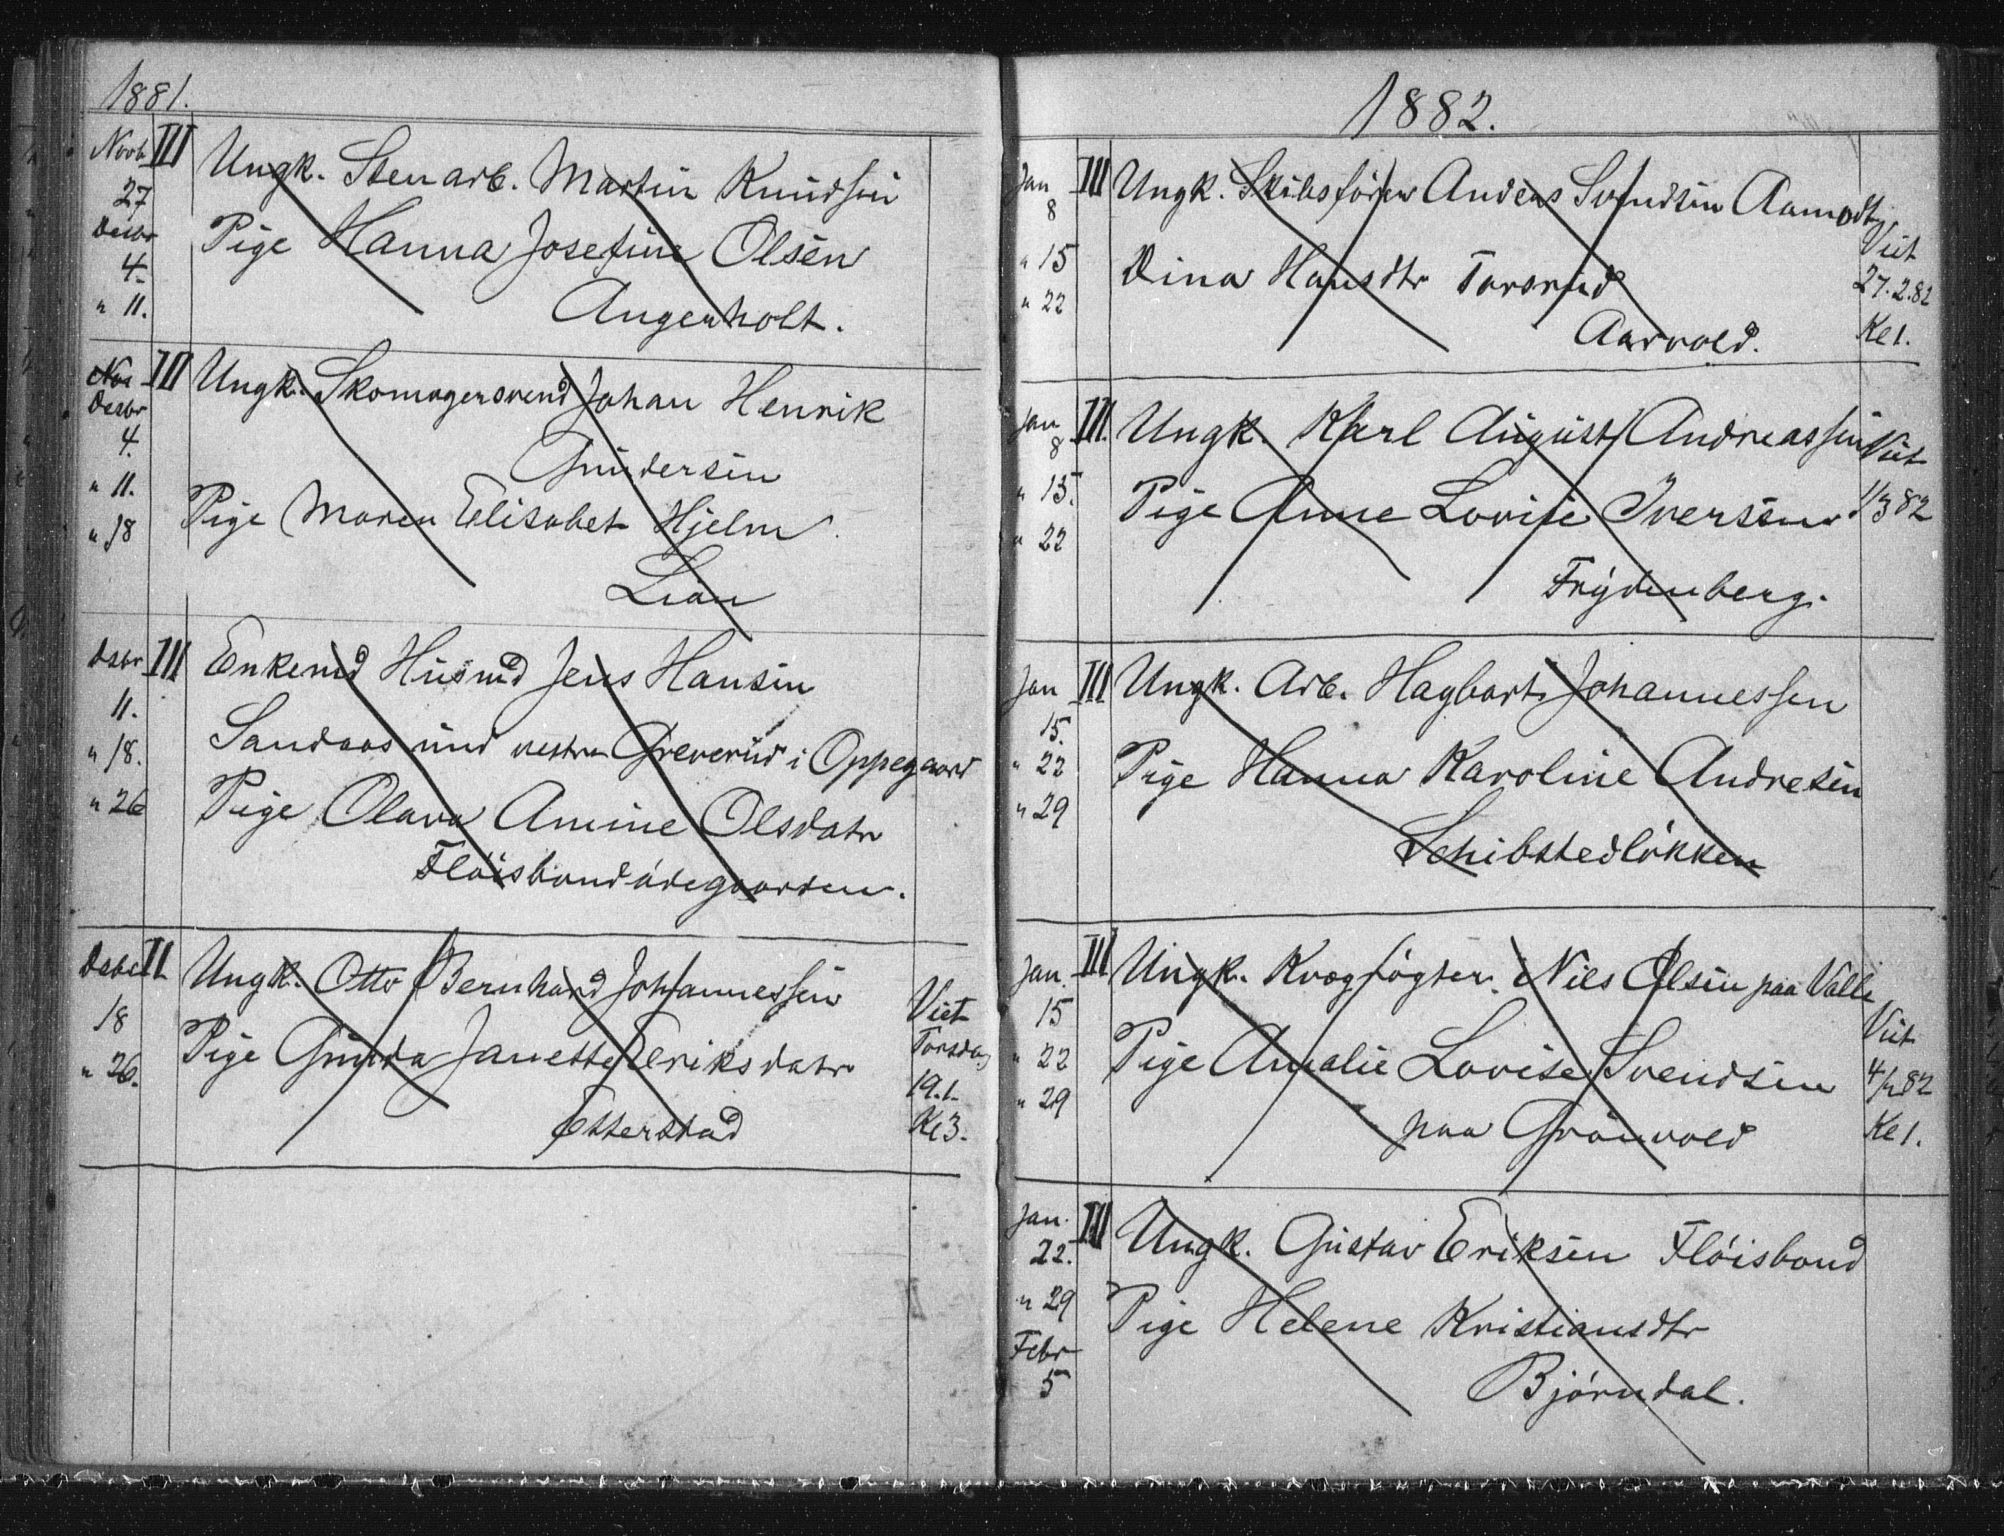 1881.
Novb III Ungk. Stenarb. Martin Knudsen
27
Desbr Pige Hanna Josefine Olsen
4
" 11. Angerholt.
Nov III Ungk. Skomagersvend Johan Henrik
Desbr
4. Gundersen
" 11.
Pige Maren Elisabet Hjelm
" 18
Lian
Dsbr III Enkemd Husmd Jens Hansen
11.
Sandaas und vestre Greverud i Oppegaard
" 18.
Pige Olava Amine Olsdatr
" 26
Fløisbondødegaarden.
Dsbr II Ungk. Otto Bernhard Johannessen
18 Viet
Pige Gunda Janette Eriksdatr Torsdag
" 26. 19.1.
Etterstad Kl 3.
1882.
Jan III Ungk. Skibsfører Anders Svendsen Aamodt
8 Viet
" 15 Dina Hansdtr Torsrud 27.2.82
" 22
Aarvold. Kl 1.
Jan III. Ungk. Karl August Andreassen Viet
8
" 15. Pige Anne Lovise Iversen 1/3 82
" 22
Frydenberg.
Jan III Ungk. Arb. Hagbart Johannessen
15.
" 22 Pige Hanna Karoline Andresen
" 29
Schibstedløkken
Jan. III Ungk. Kvægrøgter Nils Olsen paa Valle
15 Viet
" 22 Pige Amalie Lovise Svendsen 82
" 29
paa Grønvold Kl 1.
Jan. III Ungk. Gustav Eriksen Fløisbond
22.
" 29 Pige Helene Kristiansdtr
Febr
5 Bjørndal.